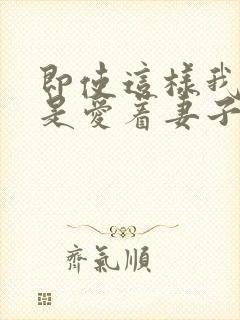 即使這樣我
是愛着妻子
齊氣順